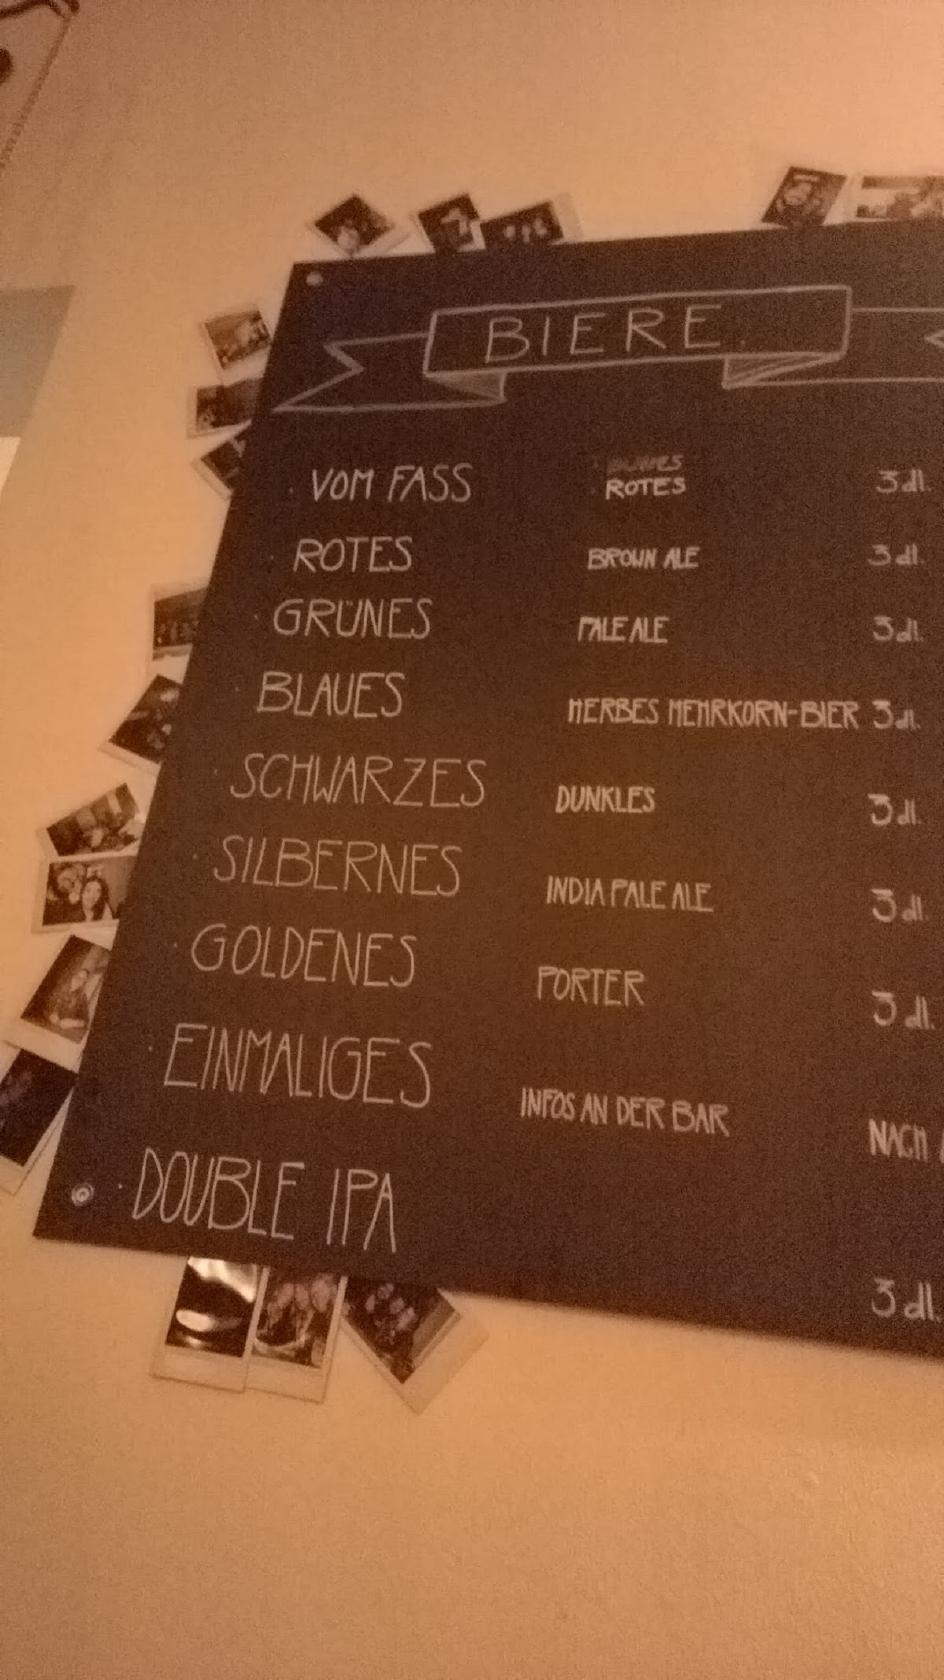 BIERE
VOM FASS ROTES 3 dl.
ROTES BROWN ALE 3 dl.
GRÜNES PALE ALE 3 dl.
BLAUES HERBES MEHRKORN-BIER 3 dl.
SCHWARZES DUNKLES 3 dl.
SILBERNES INDIA PALE ALE 3 dl.
GOLDENES PORTER 3 dl.
EINMALIGES INFOS AN DER BAR NACH
DOUBLE IPA 3 dl.